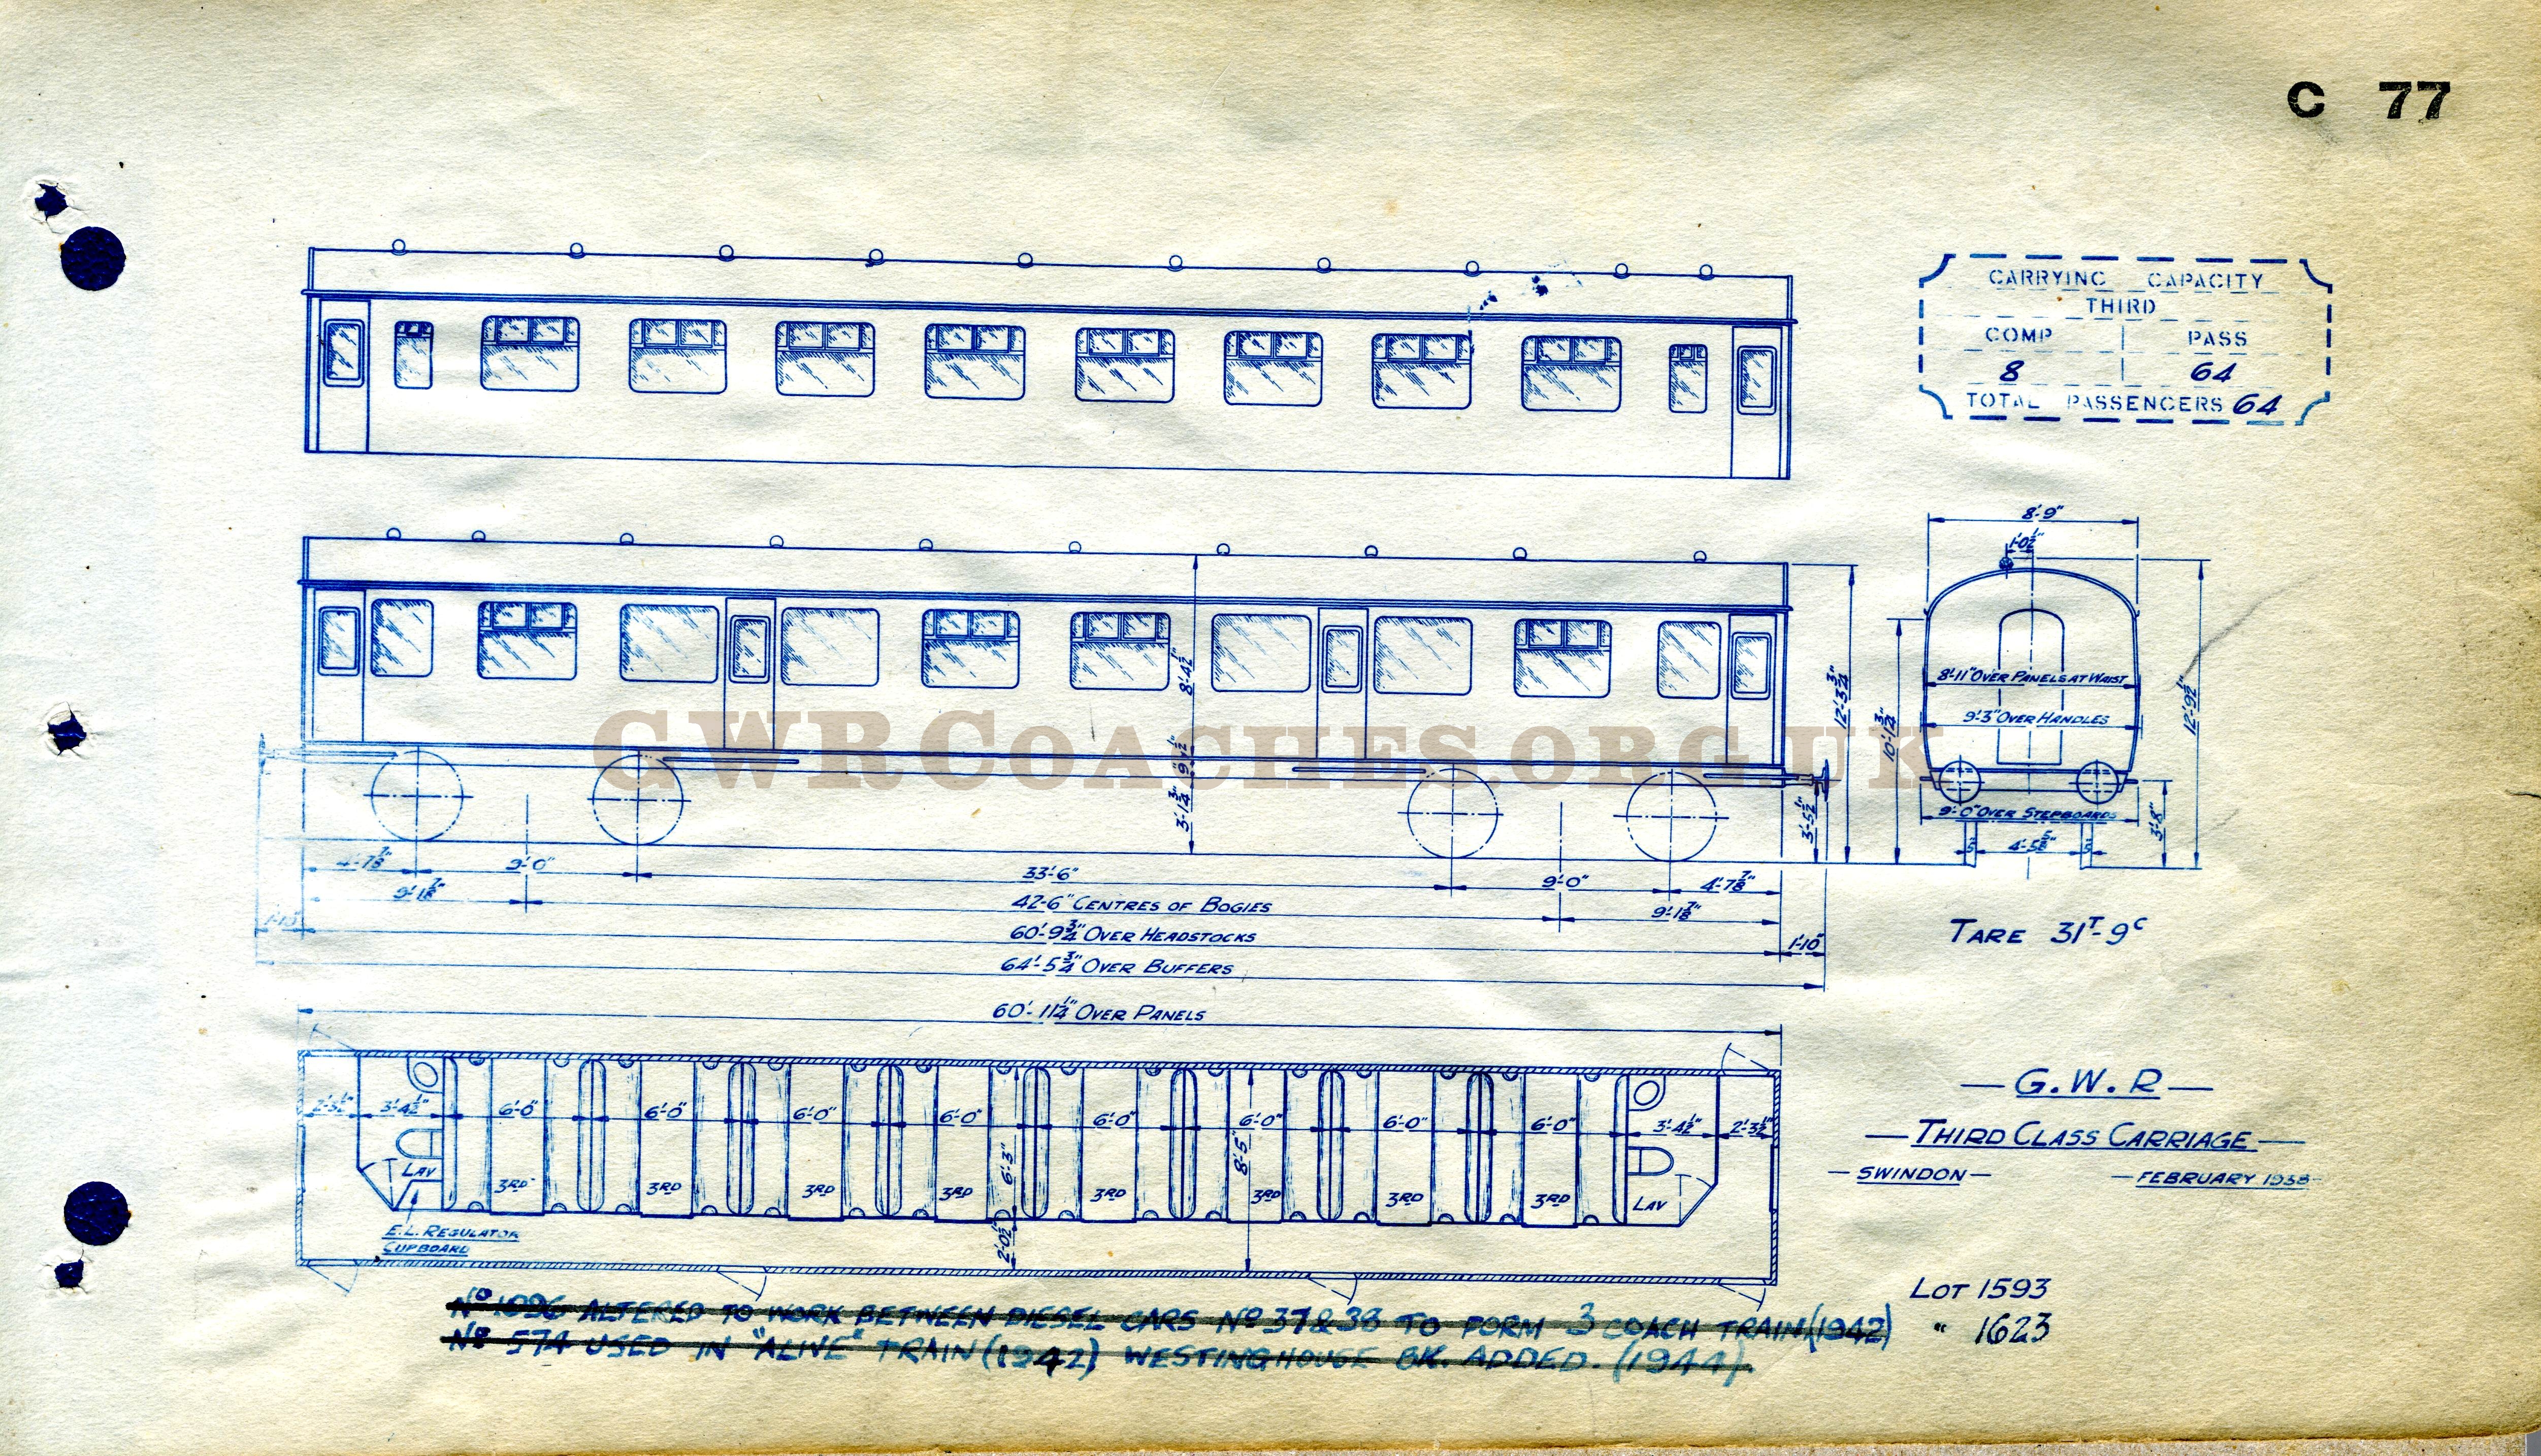 C 77
CARRYING CAPACITY
THIRD
COMP PASS
8 64
TOTAL PASSENGERS 64
8'-9"
1'-0½"
8'-11" OVER PANELS AT WAIST
9'-3" OVER HANDLES
9'-0" OVER STEPBOARDS
4'-5⅝"
3'-8"
12'-9½"
10'-1¾"
12'-3¾"
3'-5½"
8'-4½"
9½"
3'-1¾"
GWRCOACHES.ORG.UK
4'-7⅞" 9'-0" 33'-6" 9'-0" 4'-7⅞"
9'-1⅞" 42'-6" CENTRES OF BOGIES 9'-1⅞"
60'-9¾" OVER HEADSTOCKS 1'-10"
64'-5¾" OVER BUFFERS
TARE 31T-9C
60'-11¼" OVER PANELS
2'-3½" 3'-4½" 6'-0" 6'-0" 6'-0" 6'-0" 6'-0" 6'-0" 6'-0" 6'-0" 3'-4½" 2'-3½"
6'-3" 8'-5"
LAV 3RD 3RD 3RD 3RD 3RD 3RD 3RD 3RD LAV
2'-0½"
E.L. REGULATOR
CUPBOARD
— G.W.R —
— THIRD CLASS CARRIAGE —
— SWINDON — — FEBRUARY 1938 —
LOT 1593
" 1623
ALTERED TO WORK BETWEEN DIESEL CARS Nº 37 & 38 TO FORM 3 COACH TRAIN (1942)
Nº 574 USED IN "ALIVE" TRAIN (1942) WESTINGHOUSE BK. ADDED. (1944).